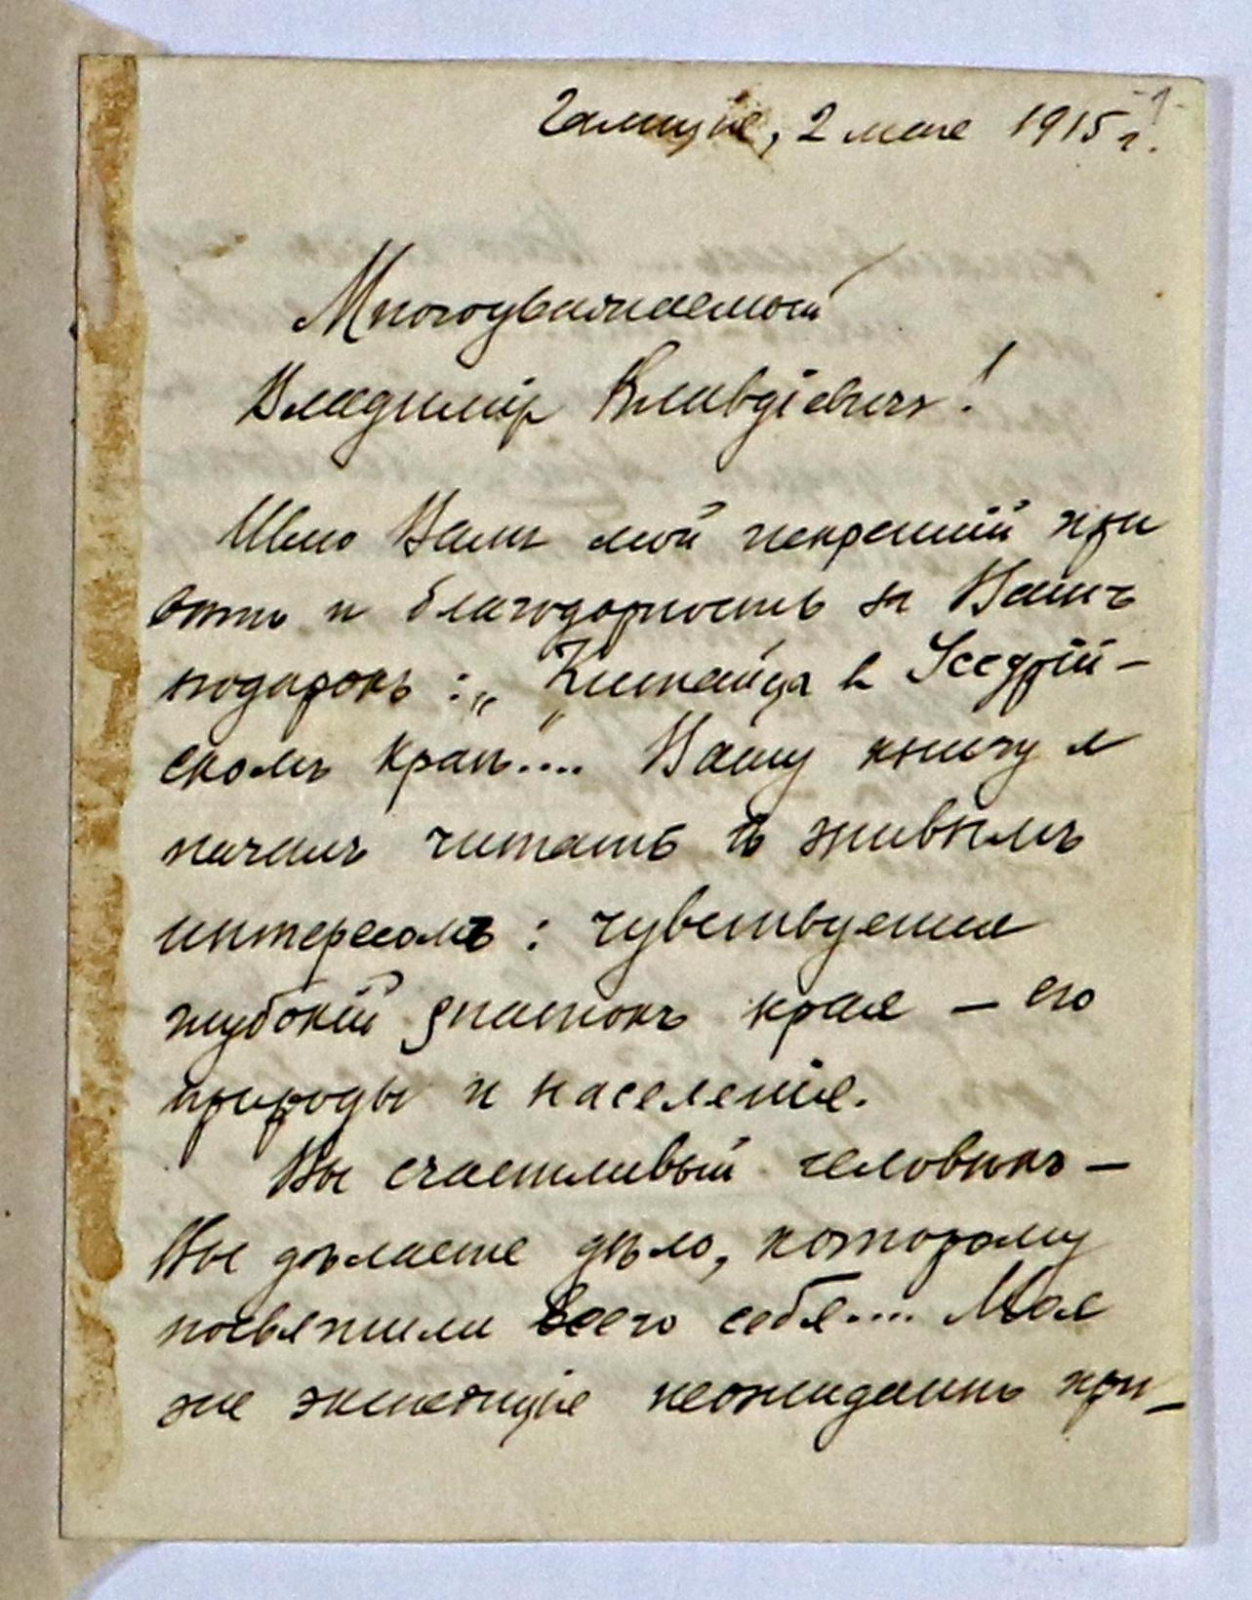 -1-
Галиція, 2 мая 1915 г.
Многоуважаемый
Владиміръ Клавдіевичъ!
Шлю Вамъ мой искренній при
вѣтъ и благодарность за Вашъ
подарокъ: „Китайцы в Уссурій-
скомъ краѣ.... Вашу книгу я
началъ читать съ живымъ
интересомъ: чувствуется
глубокій знатокъ края — его
природы и населенія.
Вы счастливый человѣкъ —
Вы дѣлаете дѣло, которому
посвятили всего себя.... Моя
же экспедиція неожиданно при-